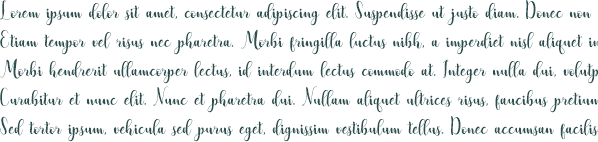 Lorem ipsum dolor sit amet, consectetur adipiscing elit. Suspendisse ut justo diam. Donec non
Etiam tempor vel risus nec pharetra. Morbi fringilla luctus nibh, a imperdiet nisl aliquet in
Morbi hendrerit ullamcorper lectus, id interdum lectus commodo at. Integer nulla dui, volutp
Curabitur et nunc elit. Nunc et pharetra dui. Nullam aliquet ultrices risus, faucibus pretium
Sed tortor ipsum, vehicula sed purus eget, dignissim vestibulum tellus. Donec accumsan facilis